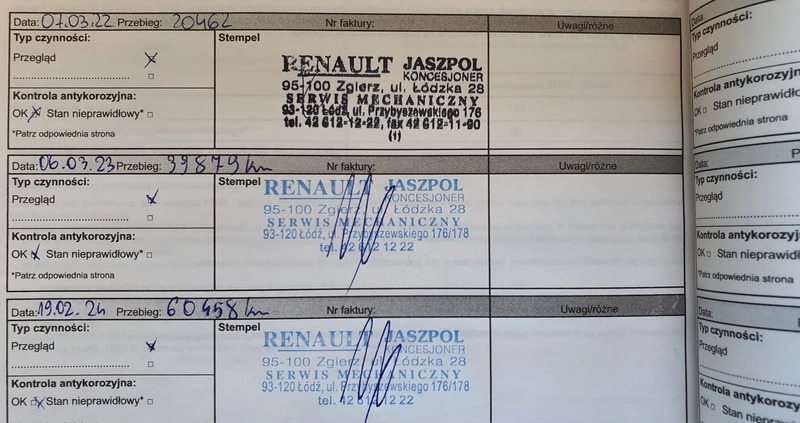 Data: 07.03.22 Przebieg: 20462 Nr faktury: Uwagi/różne
Typ czynności: Stempel
Przegląd
RENAULT JASZPOL
KONCESJONER
95-100 Zgierz, ul. Łódzka 28
SERWIS MECHANICZNY
93-120 Łódź, ul. Przybyszewskiego 176
tel. 42 612-12-22, fax 42 612-11-90
(1)
Kontrola antykorozyjna:
OK Stan nieprawidłowy*
*Patrz odpowiednia strona
Data: 06.03.23 Przebieg: 39879 km Nr faktury: Uwagi/różne
Typ czynności: Stempel
Przegląd
RENAULT JASZPOL
KONCESJONER
95-100 Zgierz, ul. Łódzka 28
SERWIS MECHANICZNY
93-120 Łódź, ul. Przybyszewskiego 176/178
tel. 42 612 12 22
Kontrola antykorozyjna:
OK Stan nieprawidłowy*
*Patrz odpowiednia strona
Data: 19.02.24 Przebieg: 60458 km Nr faktury: Uwagi/różne
Typ czynności: Stempel
Przegląd
RENAULT JASZPOL
KONCESJONER
95-100 Zgierz, ul. Łódzka 28
SERWIS MECHANICZNY
93-120 Łódź, ul. Przybyszewskiego 176/178
tel. 42 612 12 22
Kontrola antykorozyjna:
OK Stan nieprawidłowy*
Data:
Typ czynności:
Przegląd
Kontrola antykorozyj
OK Stan nieprawidło
*Patrz odpowiednia strona
Data: P
Typ czynności:
Przegląd
Kontrola antykorozyj
OK Stan nieprawidł
*Patrz odpowiednia strona
Data:
Typ czynności:
Przegląd
Kontrola antykorozy
OK Stan niepraw